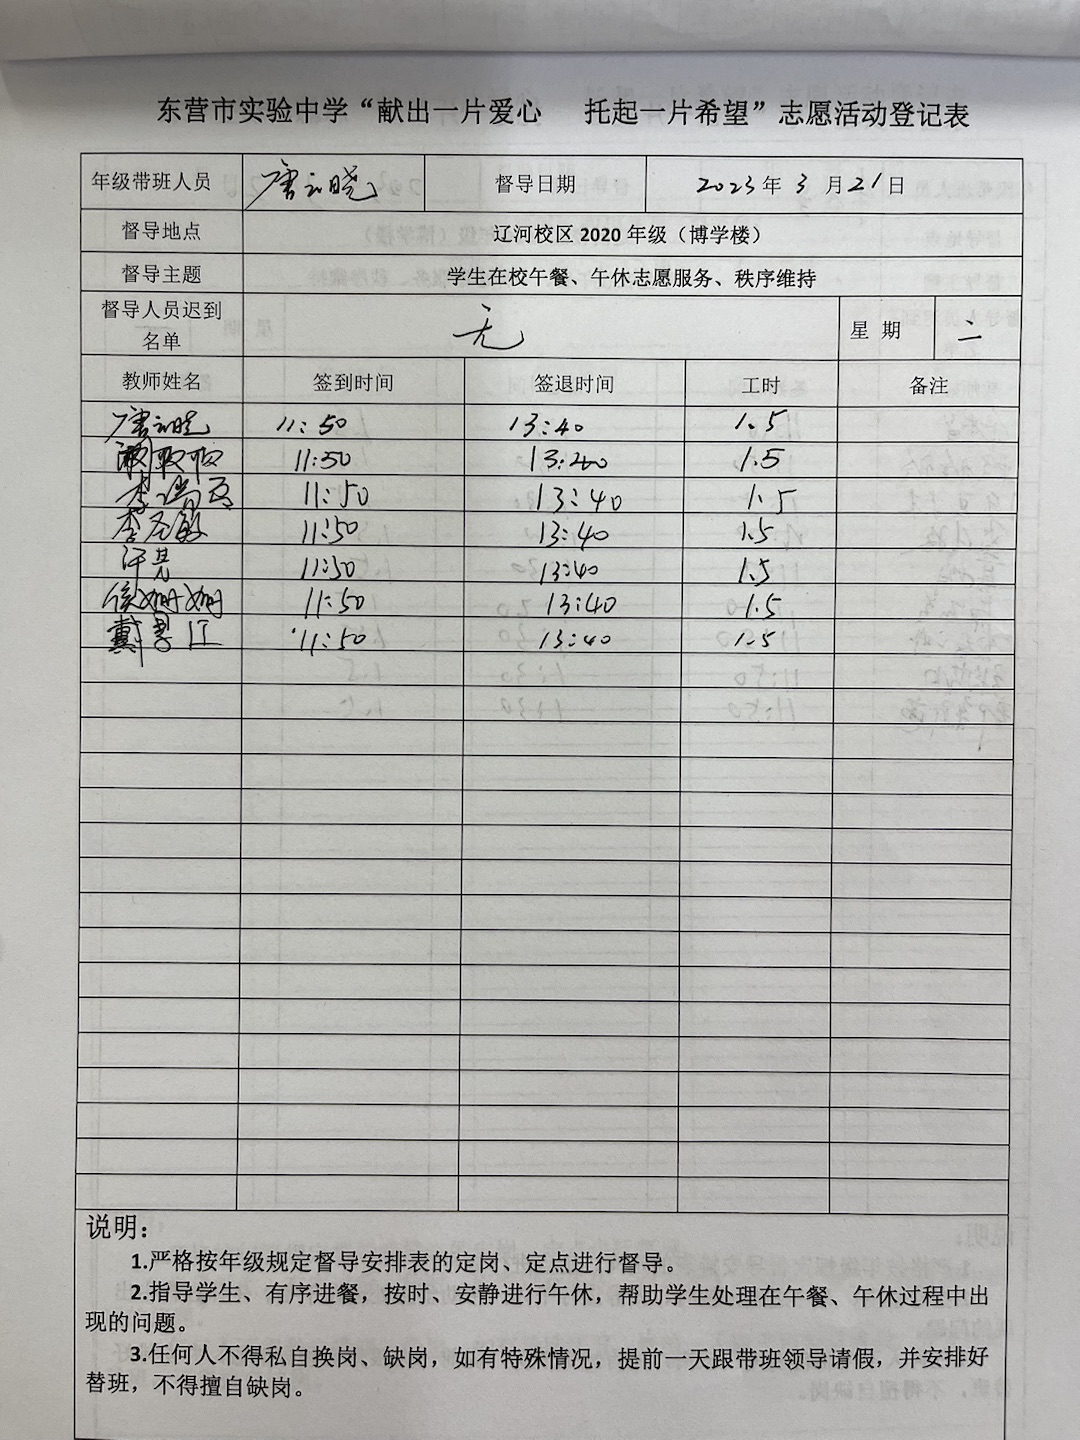 东营市实验中学“献出一片爱心 托起一片希望”志愿活动登记表
年级带班人员 唐云晓 督导日期 2023年3月21日
督导地点 辽河校区2020年级（博学楼）
督导主题 学生在校午餐、午休志愿服务、秩序维持
督导人员迟到
名单 无 星 期 二
教师姓名 签到时间 签退时间 工时 备注
唐云晓 11:50 13:40 1.5
11:50 13:40 1.5
李 11:50 13:40 1.5
李 11:50 13:40 1.5
11:50 13:40 1.5
徐姗姗 11:50 13:40 1.5
戴 江 11:50 13:40 1.5
说明：
1.严格按年级规定督导安排表的定岗、定点进行督导。
2.指导学生、有序进餐，按时、安静进行午休，帮助学生处理在午餐、午休过程中出
现的问题。
3.任何人不得私自换岗、缺岗，如有特殊情况，提前一天跟带班领导请假，并安排好
替班，不得擅自缺岗。